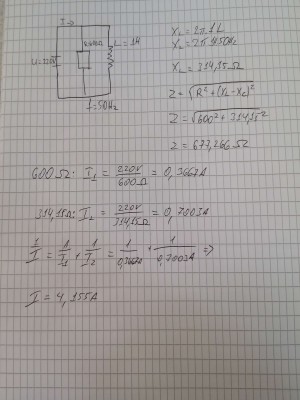 I →
R=600Ω
L=1H
U=220V
f=50Hz
X_L = 2π f L
X_L = 2π 1·50Hz
X_L = 314,15Ω
Z = √R² + (X_L - X_C)²
Z = √600² + 314,15²
Z = 677,266Ω
600Ω: I₁ = 220V / 600Ω = 0,3667A
314,15Ω: I₂ = 220V / 314,15Ω = 0,7003A
1/I = 1/I₁ + 1/I₂ = 1/0,3667A + 1/0,7003A ⇒
I = 4,155A